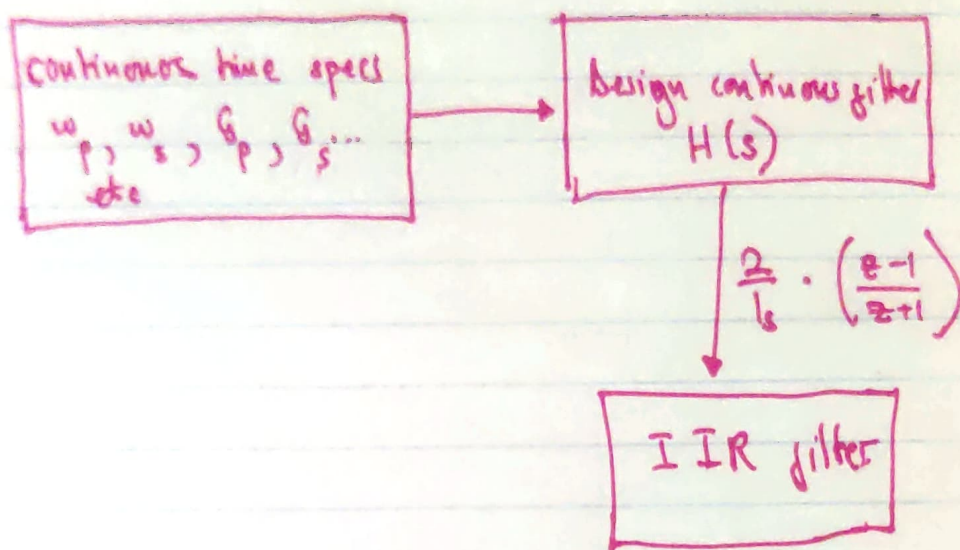 continuous time specs
ω_p, ω_s, G_p, G_s...
etc
Design continuous filter
H(s)
2/T_s · (z-1/z+1)
IIR filter